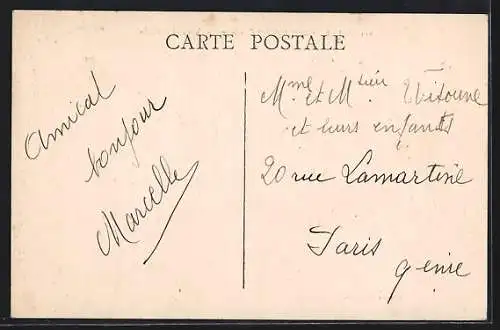 CARTE POSTALE
Amical
bonjour
Marcelle
Mme et M
et leurs enfants
20 rue Lamartine
Paris
9 eme